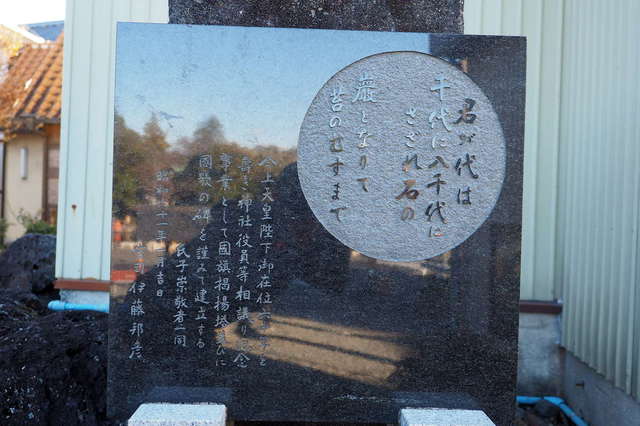 君が代は
千代に八千代に
さざれ石の
巌となりて
苔のむすまで
今上天皇陛下御在位六十年を
寿ぎ神社役員等相議り記念
事業として國旗掲揚塔並びに
國歌の碑を謹みて建立する
氏子崇敬者一同
昭和六十一年 月吉日
宮司 伊藤邦彦